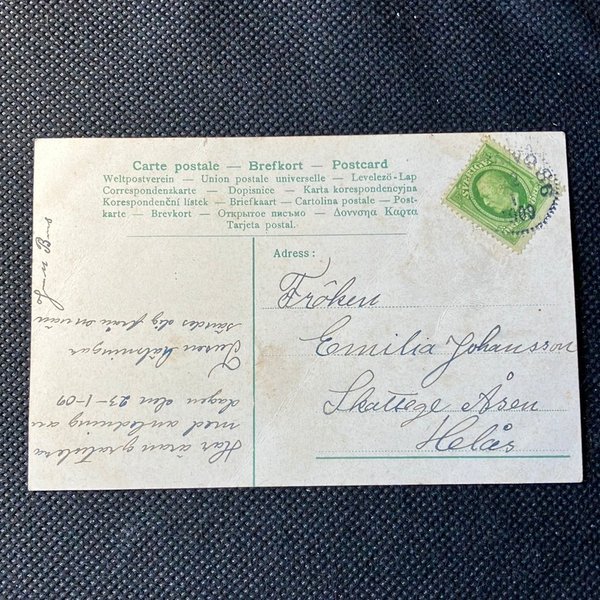 Carte postale — Brefkort — Postcard
Weltpostverein — Union postale universelle — Levelező-Lap
Correspondenzkarte — Dopisnice — Karta korespondencyjna
Korespondenční lístek — Briefkaart — Cartolina postale — Post-
karte — Brevkort — Открытое письмо — Δοννσηα Καρτα
Tarjeta postal.
SVERIGE
1936
09
Adress:
Fröken
Emilia Johansson
Skattege Åsen
Helås
Har äran gratulera
med anledning av
dagen den 23-1-09
Tusen hälsningar
sändes dig från din vän